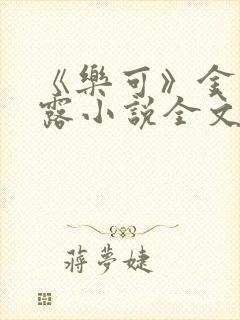 《樂可》金
露小說全文
蔣夢婕